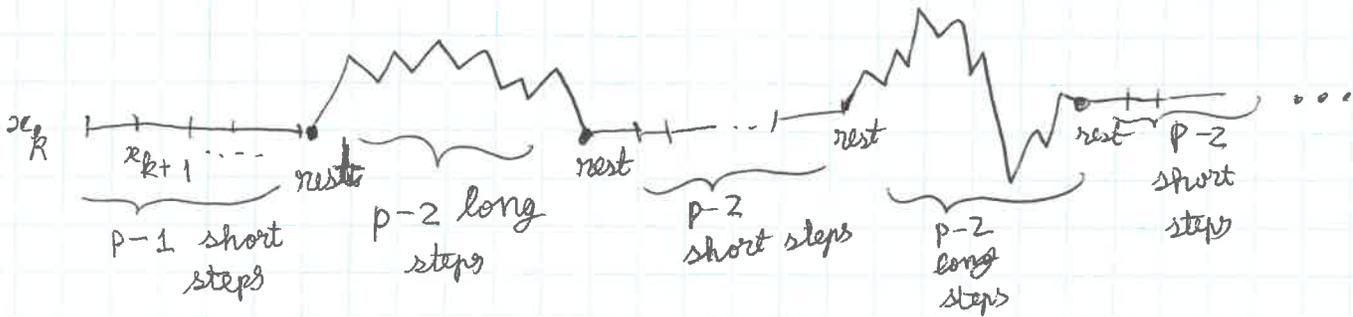 x_k
x_{k+1} ....
p-1 short
steps
rest
p-2 long
steps
rest
...
p-2
short steps
rest
p-2
long
steps
rest
p-2
short
steps
...